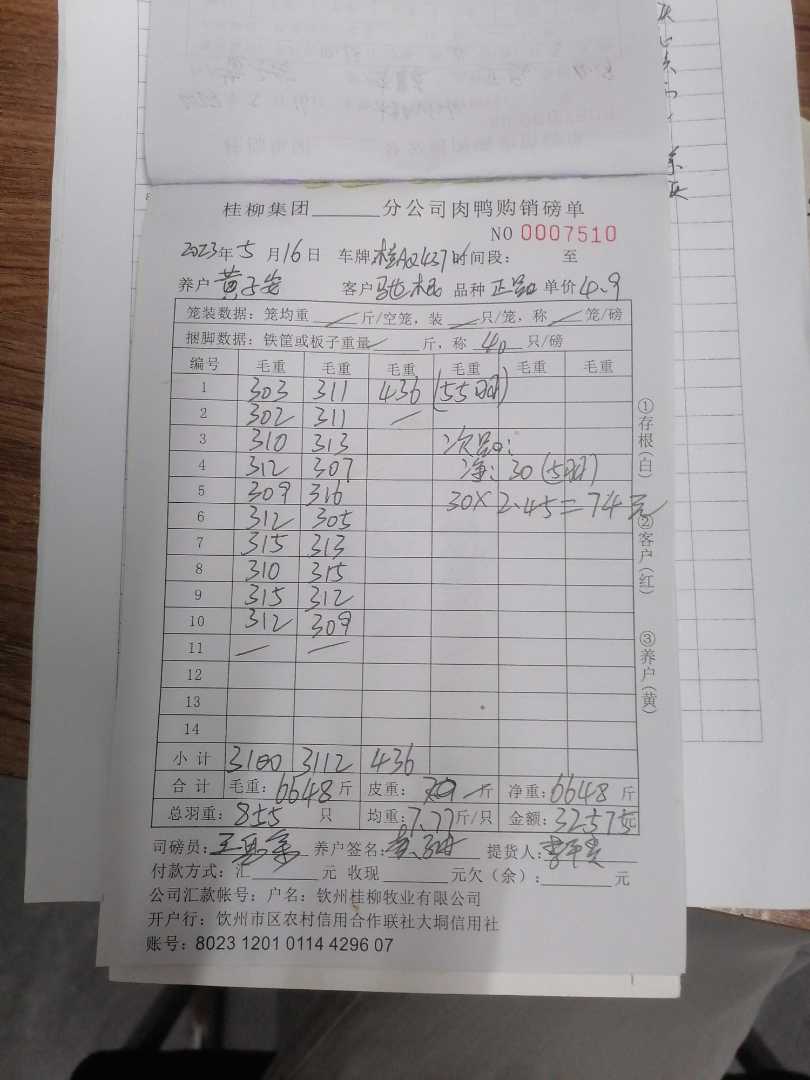 桂柳集团______分公司肉鸭购销磅单
NO 0007510
2023年5月16日 车牌:桂AQ2437 时间段: 至
养户 黄子安 客户 品种 正品 单价 4.9
笼装数据:笼均重 / 斤/空笼,装 / 只/笼,称 / 笼/磅
捆脚数据:铁筐或板子重量 / 斤,称 40 只/磅
编号 毛重 毛重 毛重 毛重 毛重 毛重
1 303 311 436 (55羽)
2 302 311 /
3 310 313 次品:
4 312 307 净:30(5羽)
5 309 316 30×2.45=74元
6 312 305
7 315 313
8 310 315
9 315 312
10 312 309
11 / /
12
13
14
小计 3100 3112 436
合计 毛重:6648斤 皮重: 斤 净重:6648斤
总羽重:855 只 均重:7.77斤/只 金额:32575元
司磅员: 养户签名: 提货人:
付款方式:汇______元 收现______元欠(余):______元
公司汇款帐号:户名:钦州桂柳牧业有限公司
开户行:钦州市区农村信用合作联社大垌信用社
账号:8023 1201 0114 4296 07
①存根(白)
②客户(红)
③养户(黄)